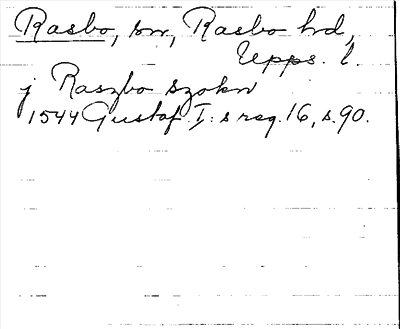 Rasbo, sn, Rasbo hd,
Upps. l.
j Raszbo szokn
1544 Gustaf I:s reg. 16, s. 90.